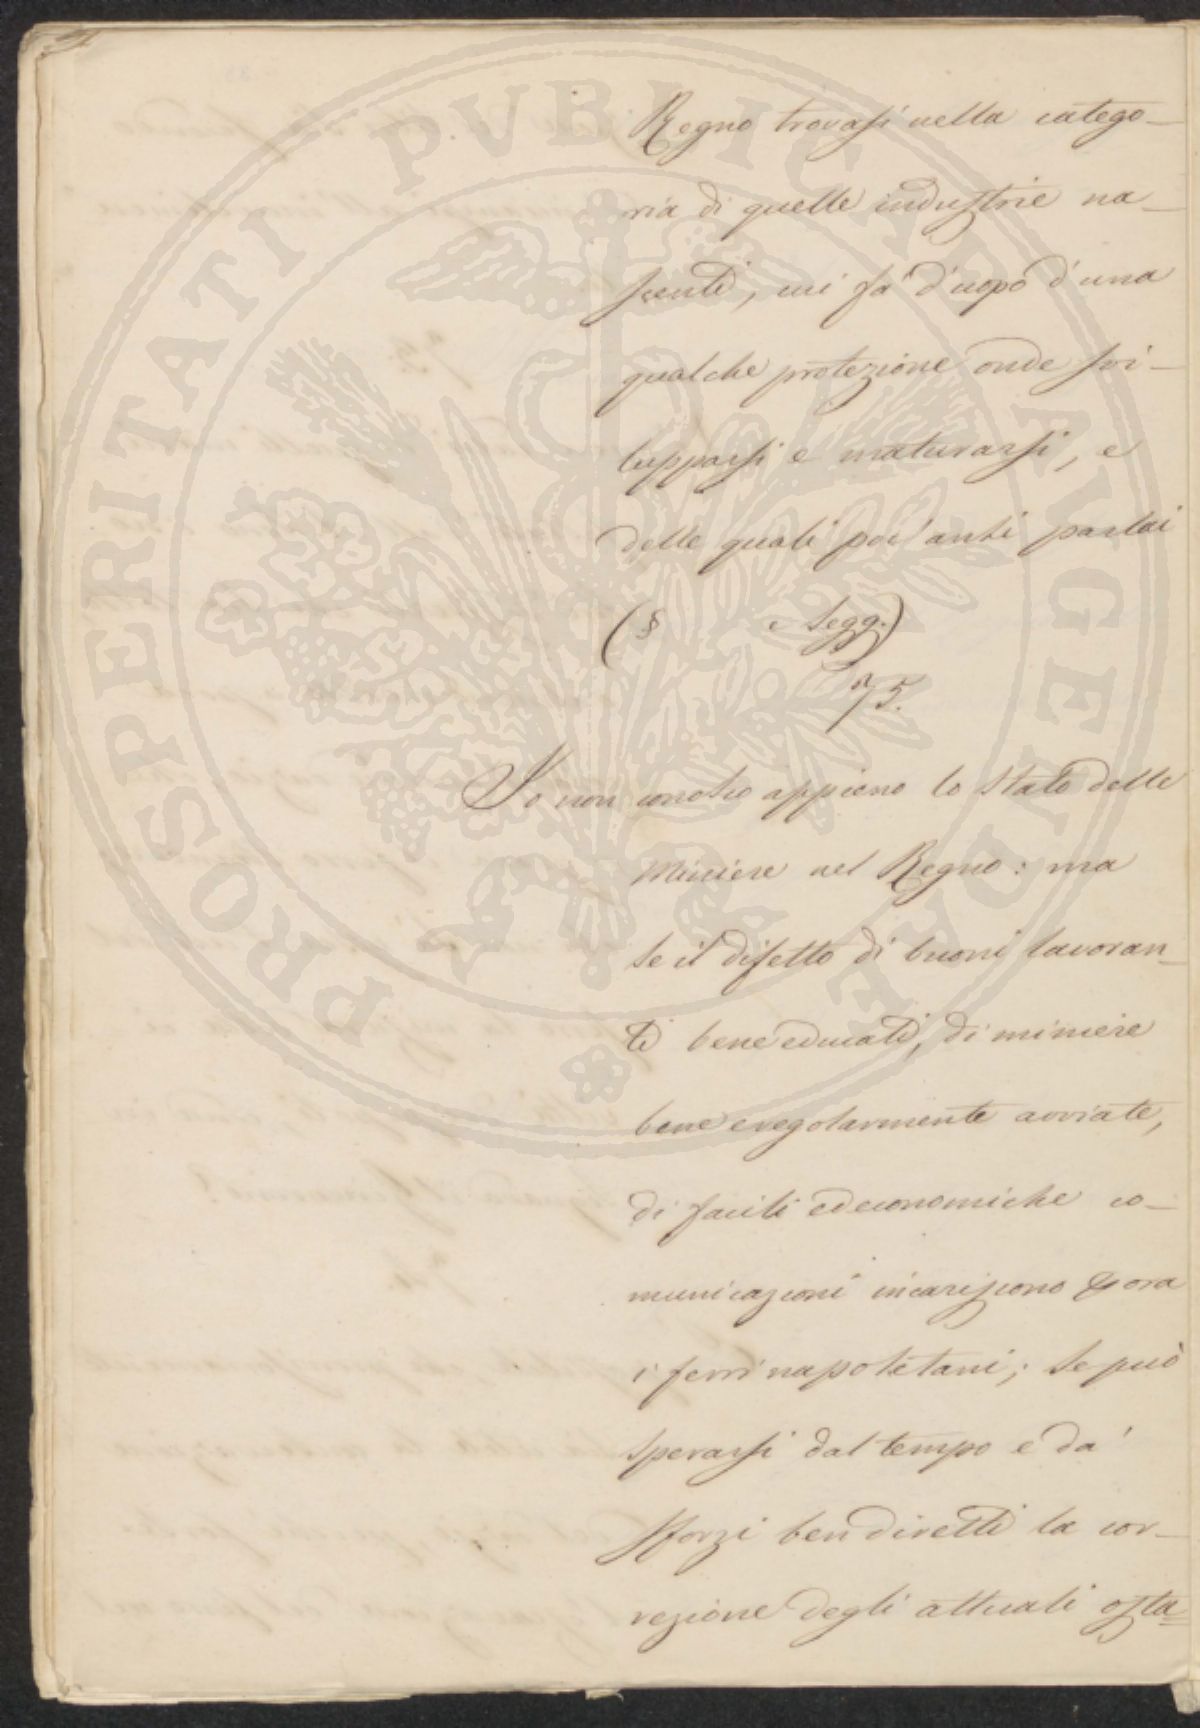 Regno trovasi nella catego-
ria di quelle industrie na-
scenti, cui fa d'uopo d'una
qualche protezione onde svi-
lupparsi e maturarsi, e
delle quali poc'anzi parlai
(§ e segg.)
75.
Io non conosco appieno lo Stato delle
Miniere nel Regno: ma
se il difetto di buoni lavoran-
ti bene educati, di miniere
bene e regolarmente avviate,
di facili ed economiche co-
municazioni incariscono ora
i ferri napoletani; se può
sperarsi dal tempo e da'
sforzi ben diretti la cor-
rezione degli attuali osta=
PROSPERITATI PVBLICAE AVGENDAE